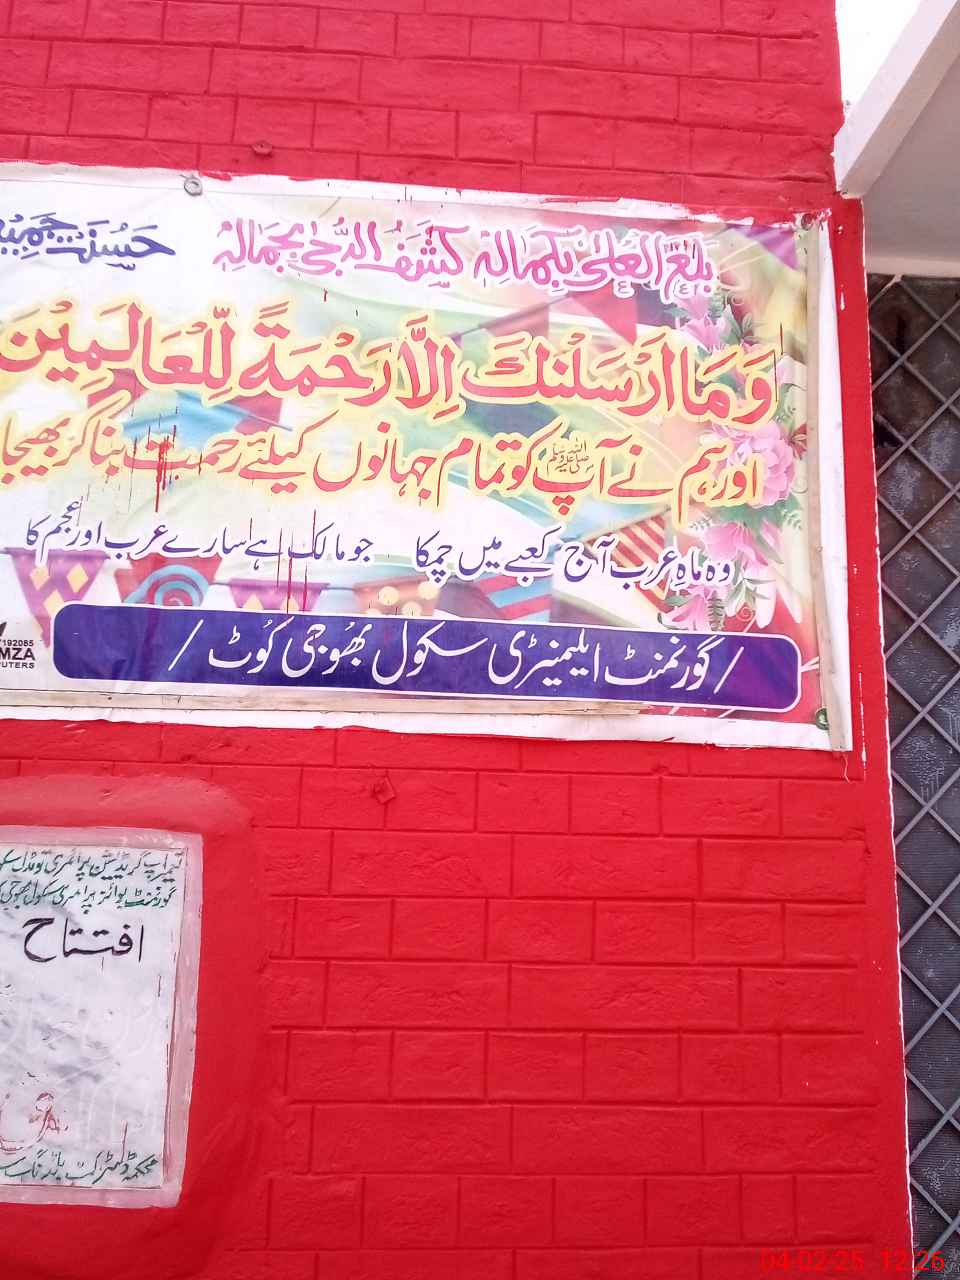 بلغ العلیٰ بکمالہٖ کشف الدجیٰ بجمالہٖ حسنت
وَمَا اَرْسَلْنٰكَ اِلَّا رَحْمَةً لِّلْعَالَمِیْنَ
اور ہم نے آپ ﷺ کو تمام جہانوں کیلئے رحمت بنا کر بھیجا
وہ ماہِ عرب آج کعبے میں چمکا جو مالک ہے سارے عرب اور عجم کا
192085
MZA
PUTERS
/ گورنمنٹ ایلیمنٹری سکول بھُوجی کوُٹ /
اپ گریڈیشن پرائمری تو مڈل
گورنمنٹ بوائز پرائمری سکول بھوجی
افتتاح
محکمہ
04-02-25 12:26